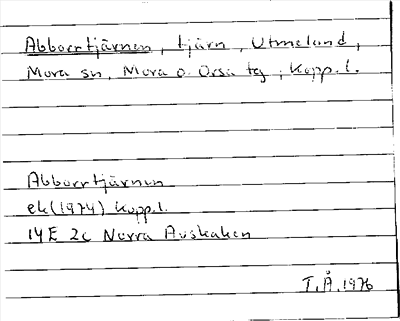 Abborrtjärnen, tjärn, Utmeland,
Mora sn, Mora o. Orsa tg, Kopp. l.
Abborrtjärnen
ek (1974) Kopp. l.
14E 2c Norra Auskaken
T.Å. 1976